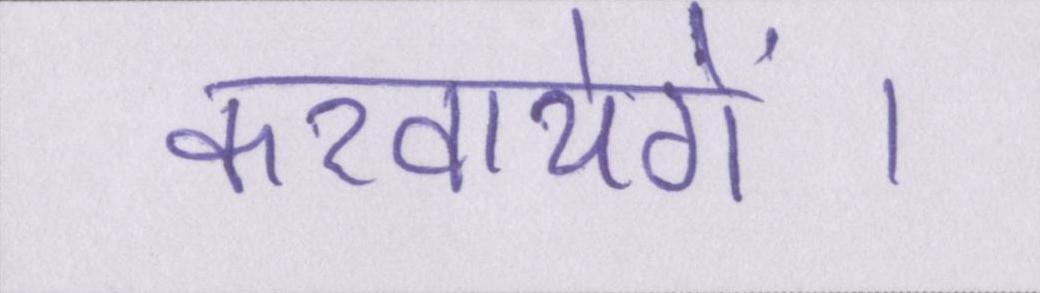 करवायेगें ।